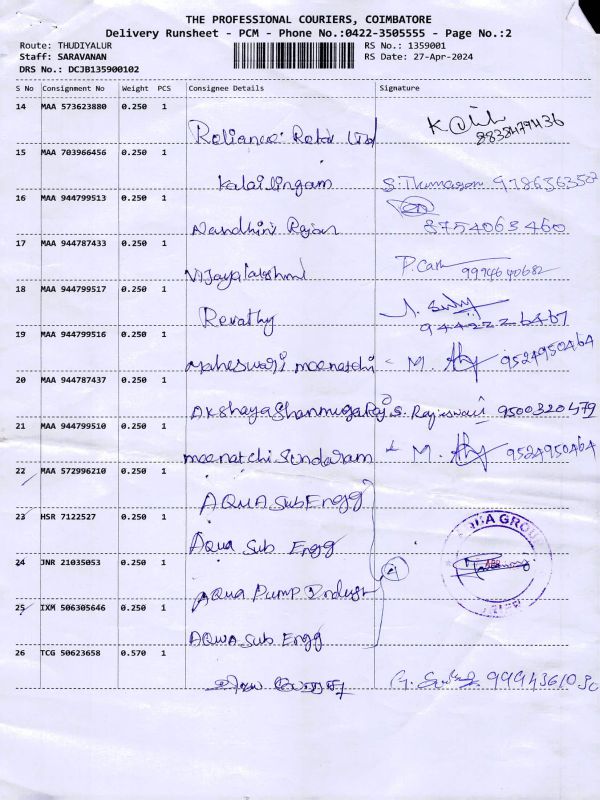 THE PROFESSIONAL COURIERS, COIMBATORE
Delivery Runsheet - PCM - Phone No.:0422-3505555 - Page No.:2
Route: THUDIYALUR RS No.: 1359001
Staff: SARAVANAN RS Date: 27-Apr-2024
DRS No.: DCJB135900102
S No Consignment No Weight PCS Consignee Details Signature
14 MAA 573623880 0.250 1
Reliance Retail Ltd 8838479436
15 MAA 703966456 0.250 1
Kalailingam
16 MAA 944799513 0.250 1
Nandhini Rajan 8754063460
17 MAA 944787433 0.250 1
Vijayalakshmi 9994640682
18 MAA 944799517 0.250 1
Revathy
19 MAA 944799516 0.250 1
Maheswari meenatchi - M. 9524950464
20 MAA 944787437 0.250 1
Akshaya Shanmuga Raj S. Rajeswari 9500320479
21 MAA 944799510 0.250 1
meenatchi Sundaram M. 9524950464
22 MAA 572996210 0.250 1
AQUA Sub Engg
23 HSR 7122527 0.250 1
Aqua Sub Engg
AQUA GROUP
24 JNR 21035053 0.250 1
Aqua Pump Indust
25 IXM 506305646 0.250 1
AQUA Sub Engg
26 TCG 50623658 0.570 1